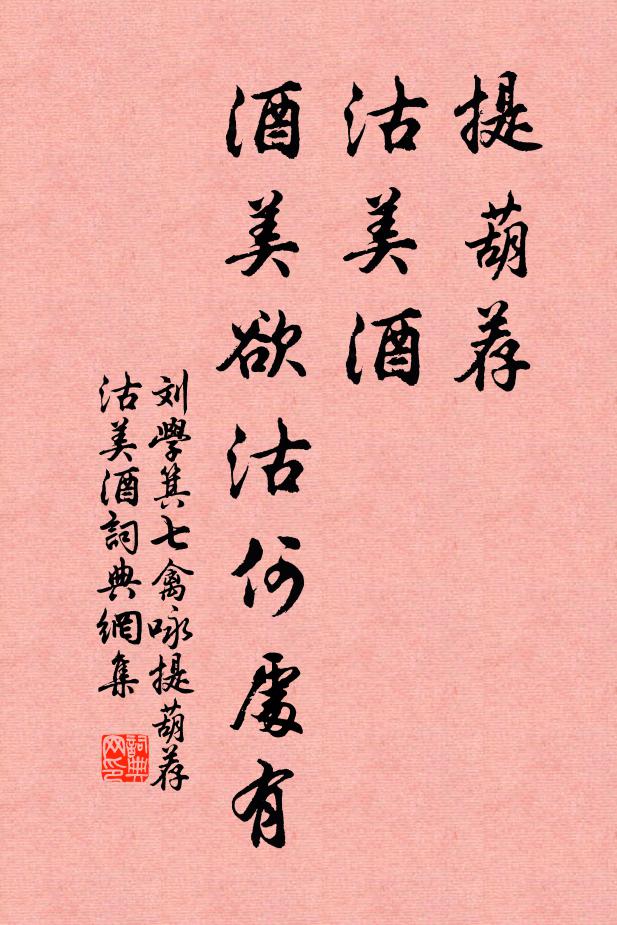 提葫荐
沽美酒
酒美欲沽何處有
刘學箕七禽咏提葫荐
沽美酒詞典網集
詞典网印